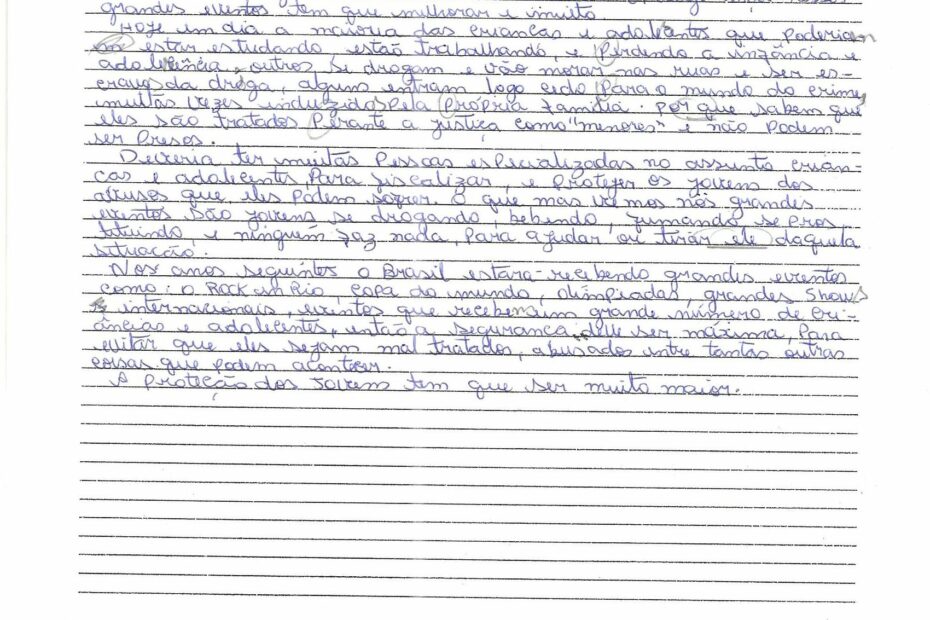 grandes eventos tem que melhorar e muito.
Hoje em dia a maioria das crianças e adolecentes que poderiam
estar estudando, estão trabalhando, e Perdendo a infância e
adolecência, outros se drogam e vão morar nas ruas e ser es-
cravos da droga, alguns entram logo cedo Para o mundo do crime,
muitas vezes induzidos pela Própria Família. Por que sabem que
eles são tratados Perante a justiça como "menores" e não Podem
ser Presos.
Deveria ter muitas Pessoas especializadas no assunto crian-
ças e adolecentes, Para fiscalizar, e proteger os jovens dos
abusos que eles Podem sofrer. O que mas vemos nos grandes
eventos são jovens se drogando, bebendo, fumando, se Pros
tituindo, e ninguém faz nada, Para ajudar ou tirar ele daquela
situação.
Nos anos seguintes o Brasil estara recebendo grandes eventos
como: o Rock in Rio, copa do mundo, olimpiadas, grandes Shows
internacionais, eventos que recebem grande número de cri-
anças e adolecentes, então a segurança deve ser máxima, Para
evitar que eles sejam mal tratados, abusados entre tantas outras
coisas que podem acontecer.
A proteção dos Jovem tem que ser muito maior.